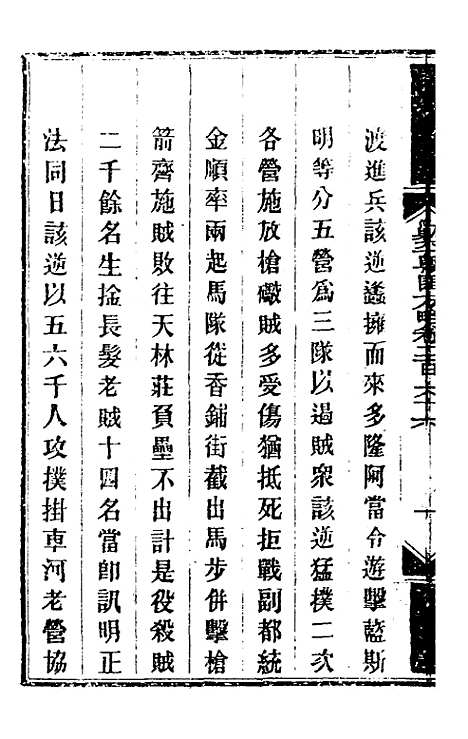 渡進兵該逆蠭擁而來多隆阿當令遊擊藍斯
明等分五營爲三隊以遏賊衆該逆猛撲二次
各營施放槍礮賊多受傷猶抵死拒戰副都統
金順率兩起馬隊從香鋪街截出馬步併擊槍
箭齊施賊敗往天林莊負壘不出計是役殺賊
二千餘名生擒長髮老賊十四名當卽訊明正
法同日該逆以五六千人攻撲掛車河老營協